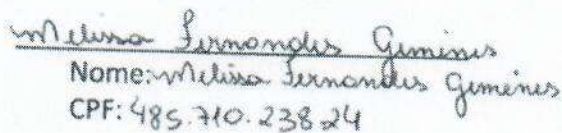 Melissa Fernandes Gimenes
Nome: Melissa Fernandes Gimenes
CPF: 485.710.238 24